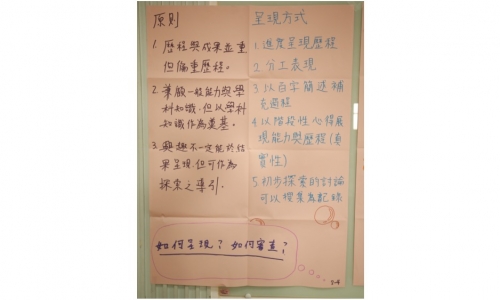 原則
1. 歷程與成果並重
但偏重歷程。
2. 兼顧一般能力與學
科知識,但以學科
知識作為奠基。
3. 興趣不一定能於結
果呈現,但可作為
探索之導引。
呈現方式
1. 進度呈現歷程
2. 分工表現
3 以百字簡述補
充過程
4. 以階段性心得展
現能力與歷程(真
實性)
5. 初步探索的討論
可以檔案為記錄
如何呈現?如何審查?